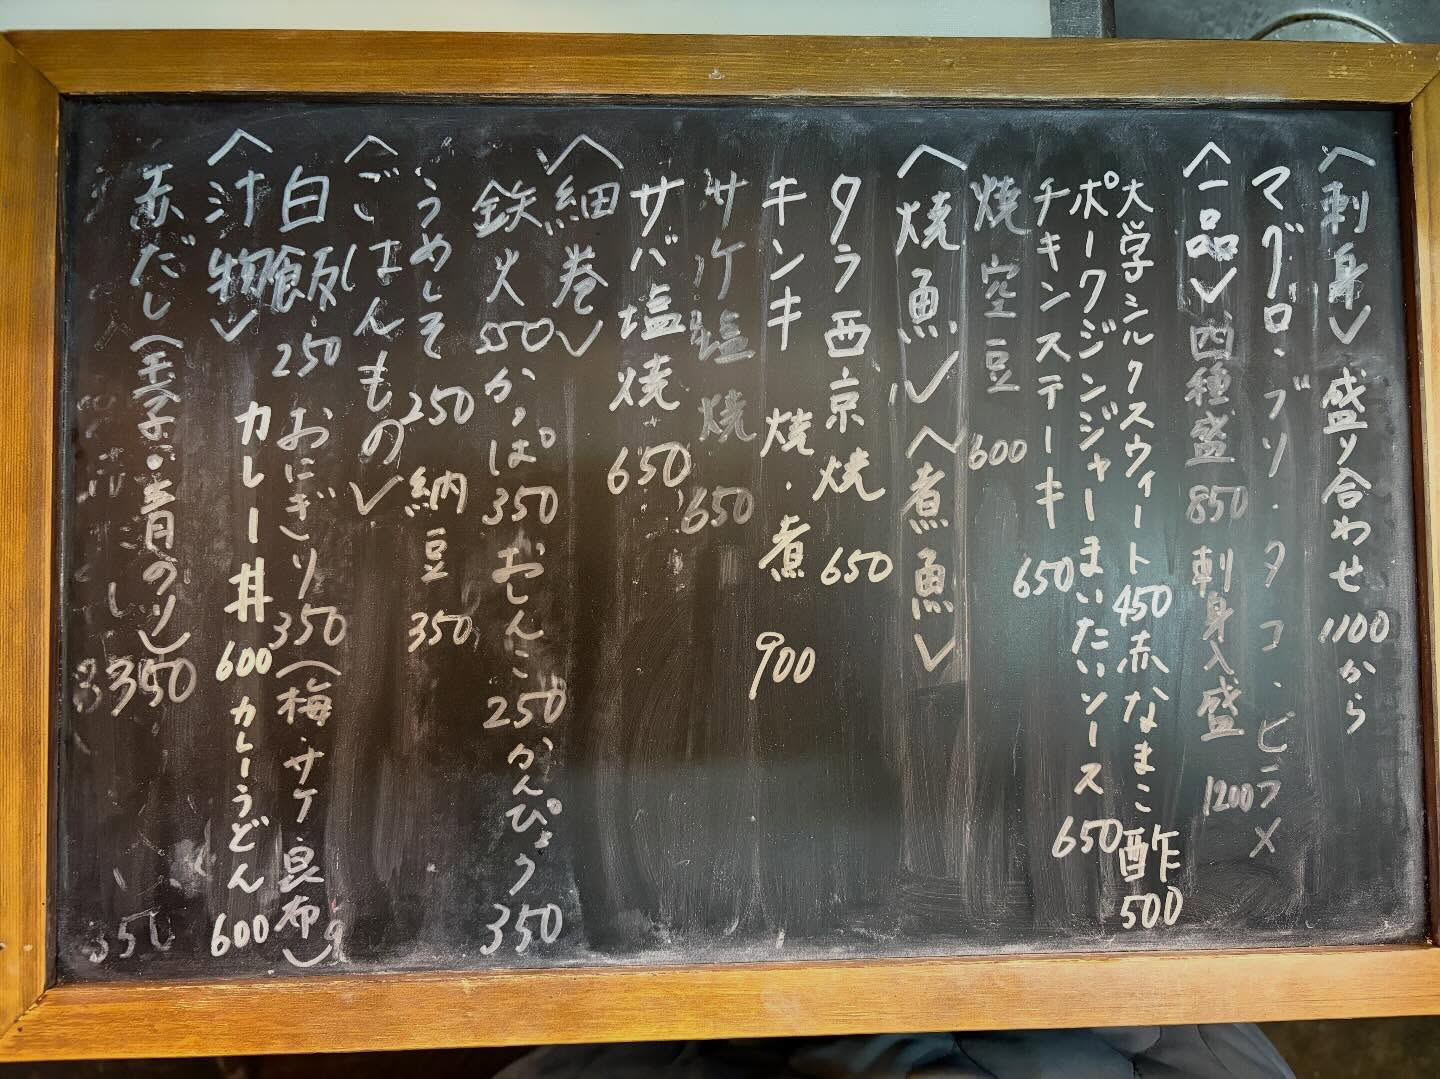 〈刺身〉盛り合わせ 1100から
マグロ・ブリ・タコ・ヒラメ
〈一品〉四種盛 850 刺身入盛 1200
大学シルクスウィート 450 赤なまこ酢 500
ポークジンジャーまいたいソース 650
チキンステーキ 650
焼空豆 600
〈焼魚〉〈煮魚〉
タラ西京焼 650
キンキ 焼・煮 900
サケ塩焼 650
サバ塩焼 650
〈細巻〉
鉄火 550 かっぱ 350 おしんこ 250 かんぴょう 350
うめしそ 250 納豆 350
〈ごはんもの〉
白飯 250 おにぎり 350（梅・サケ・昆布）
カレー丼 600 カレーうどん 600
〈汁物〉
赤だし（玉子・青のり） 350
350